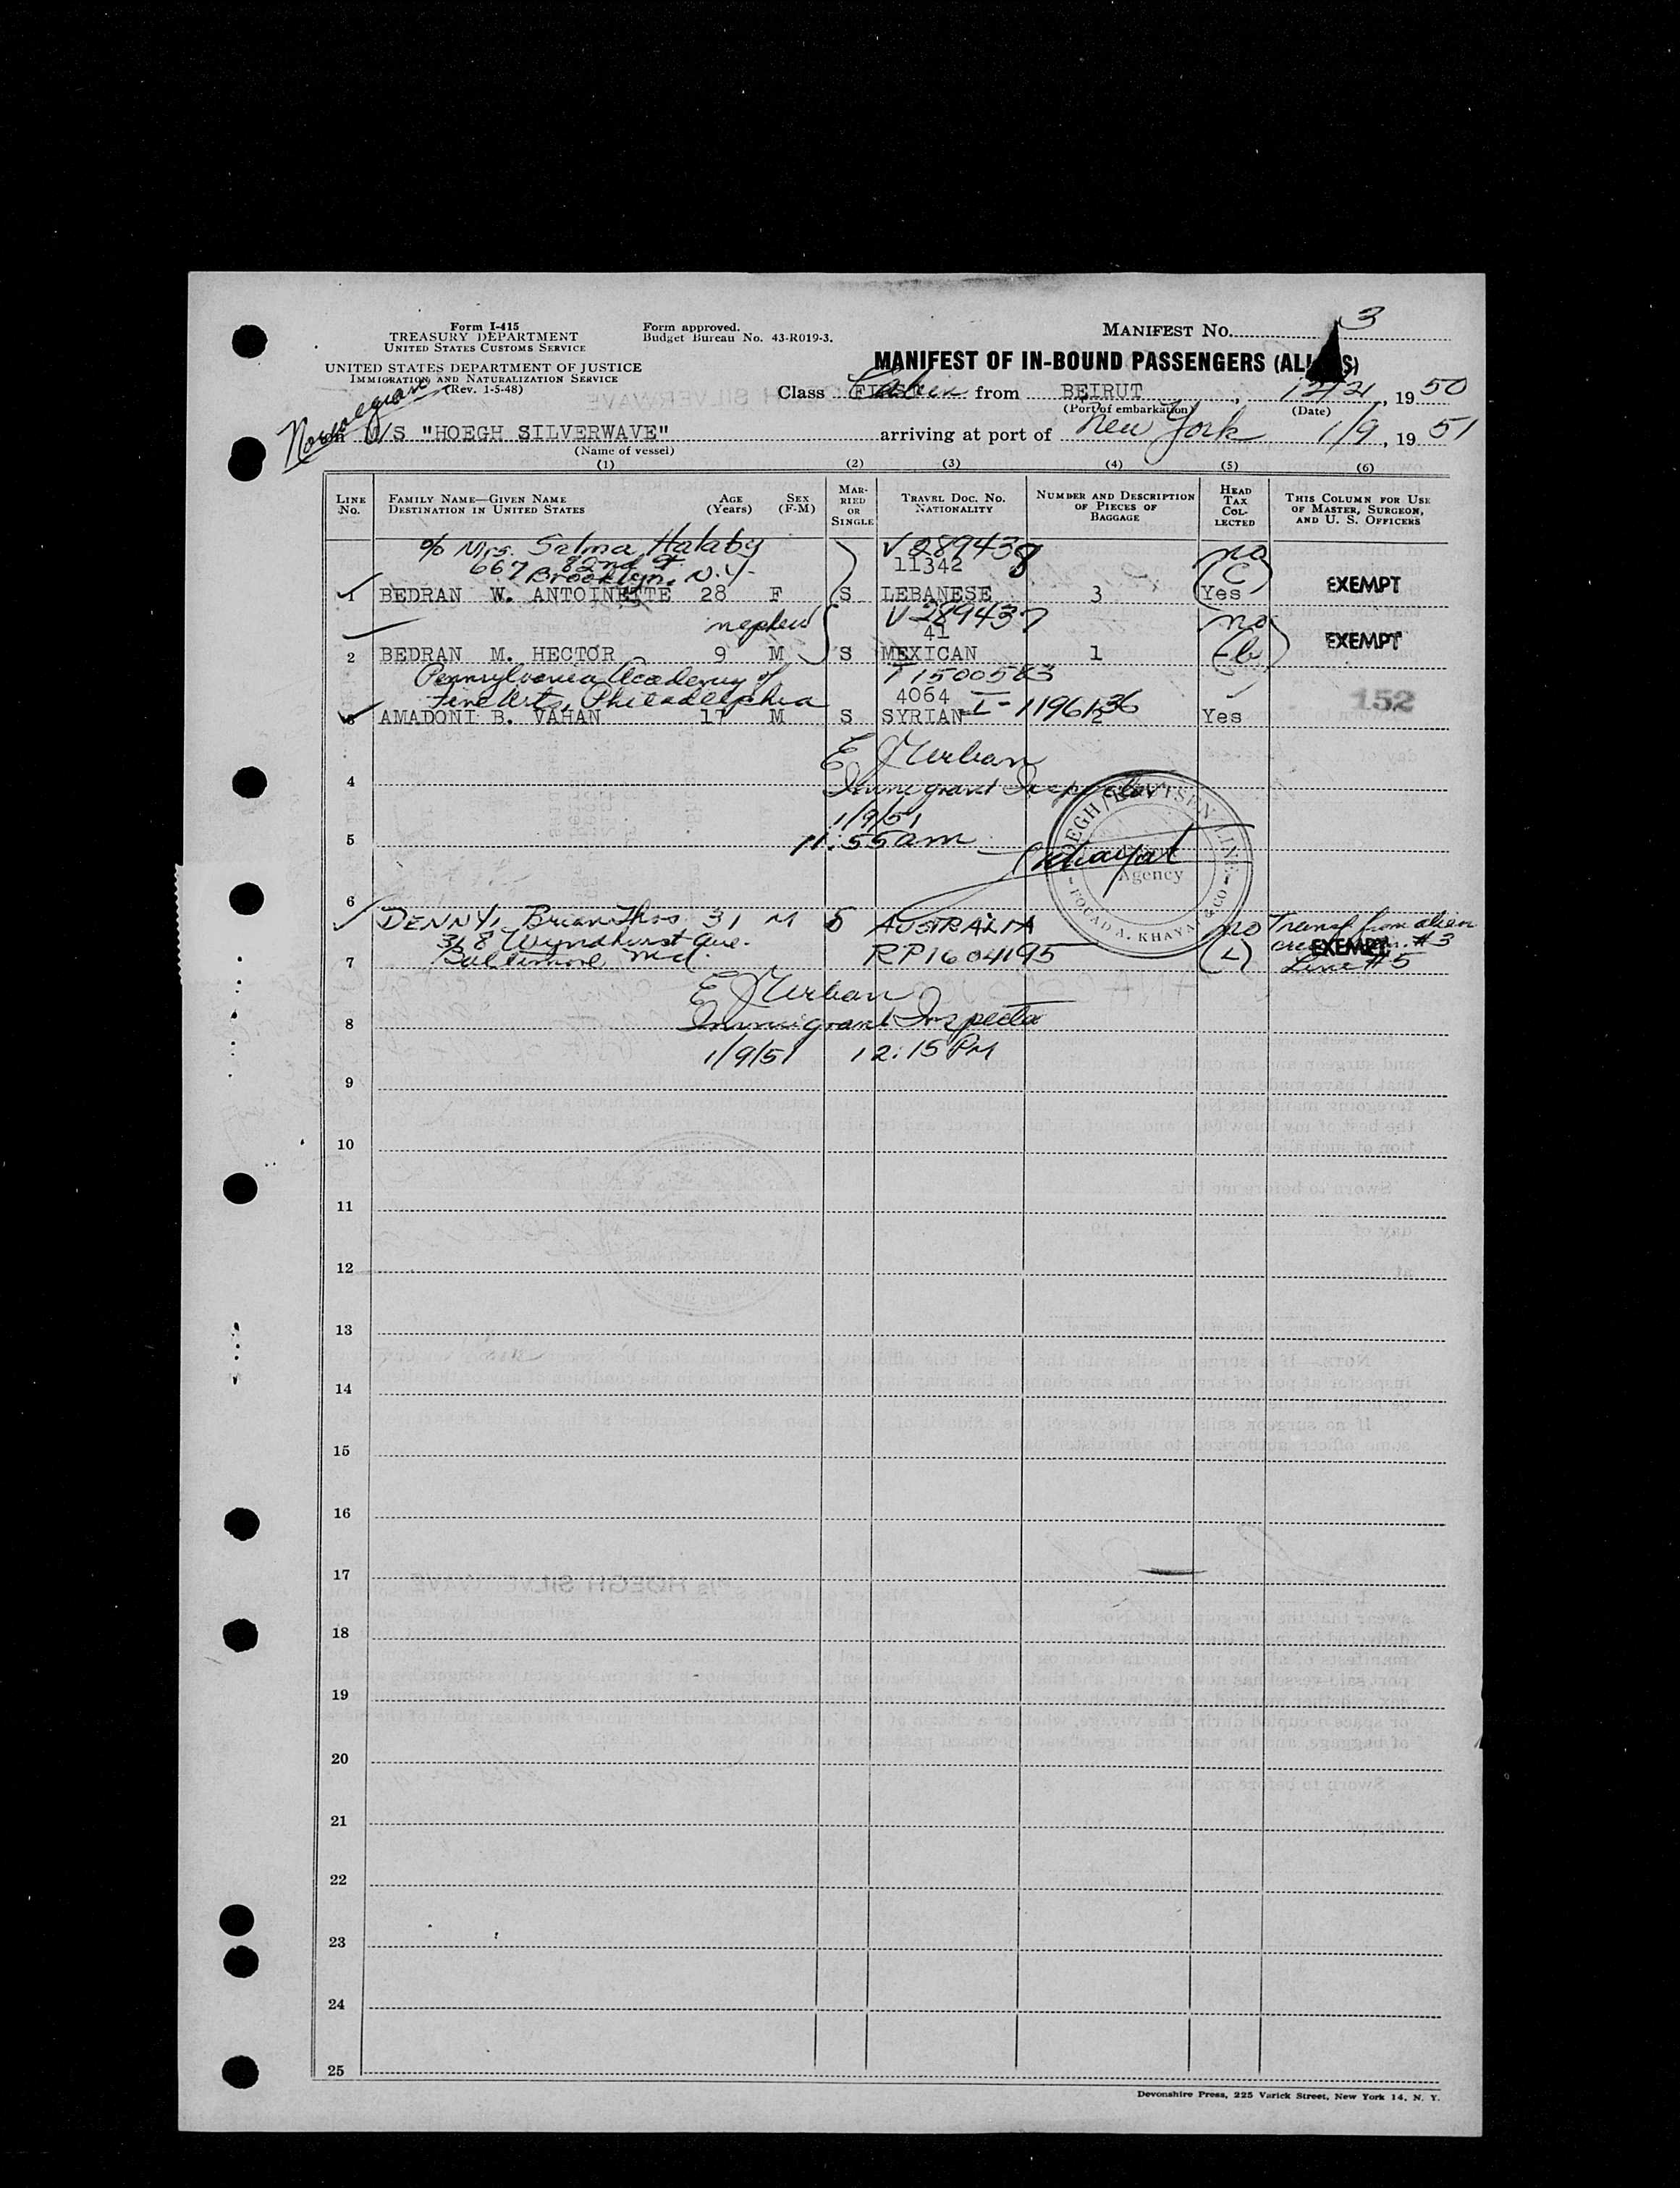 Form I-415
TREASURY DEPARTMENT
UNITED STATES CUSTOMS SERVICE
UNITED STATES DEPARTMENT OF JUSTICE
IMMIGRATION AND NATURALIZATION SERVICE
(Rev. 1-5-48)
Form approved.
Budget Bureau No. 43-R019-3.
MANIFEST NO. 3
MANIFEST OF IN-BOUND PASSENGERS (ALIENS)
Class Cabin from BEIRUT, 12/21, 1950
(Port of embarkation) (Date)
Norwegian
M/S "HOEGH SILVERWAVE" arriving at port of New York 1/9, 1951
(Name of vessel)
(1) (2) (3) (4) (5) (6)
LINE NO.
FAMILY NAME—GIVEN NAME
DESTINATION IN UNITED STATES
AGE (Years)
SEX (F-M)
MARRIED OR SINGLE
TRAVEL DOC. NO. NATIONALITY
NUMBER AND DESCRIPTION OF PIECES OF BAGGAGE
HEAD TAX COLLECTED
THIS COLUMN FOR USE OF MASTER, SURGEON, AND U. S. OFFICERS
c/o Mrs. Selma Halaby V 289438 no
667 82nd St 11342 (C)
Brooklyn, N.Y.
1 BEDRAN W. ANTOINETTE 28 F S LEBANESE 3 Yes EXEMPT
nephew V 289437 no
41
2 BEDRAN M. HECTOR 9 M S MEXICAN 1 EXEMPT
Pennsylvania Academy of T1500583
Fine Arts, Philadelphia 4064 I-1196136 152
3 AMADONI B. VAHAN 17 M S SYRIAN 2 Yes
E J Urban
4 Immigrant Inspector
1/9/51
5 11:55 am
HOEGH LINE
Agency
FOUAD A. KHAYAT & CO
6
DENNY, Brian Thos 31 M S AUSTRALIA no Transf from alien
318 Wyndhurst Ave. RP1604195 EXEMPT #3
7 Baltimore Md. (L) Line #5
E J Urban
8 Immigrant Inspector
1/9/51 12:15 PM
9
10
11
12
13
14
15
16
17
18
19
20
21
22
23
24
25
Devonshire Press, 225 Varick Street, New York 14, N. Y.